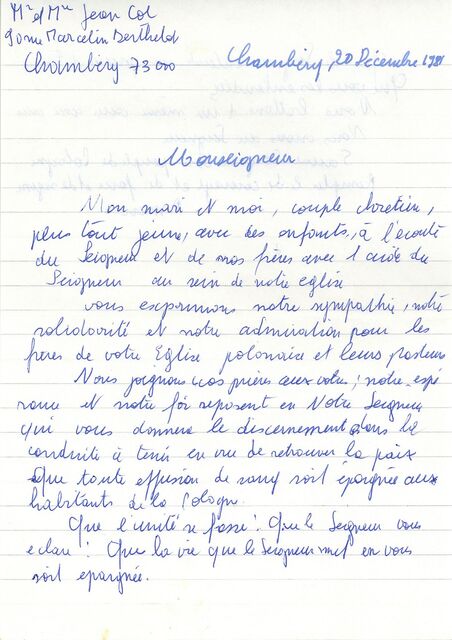 Mr et Mme Jean Col
90 rue Marcelin Berthelot
Chambéry 73000
Chambéry, 20 Décembre 1981
Monseigneur
Mon mari et moi, couple chrétien,
plus tout jeune, avec des enfants, à l'écoute
du Seigneur et de nos frères avec l'aide du
Seigneur au sein de notre église
vous exprimons notre sympathie, notre
solidarité et notre admiration pour les
frères de votre Eglise polonaise et leurs pasteurs
Nous joignons nos prières aux votres; notre espé
rance et notre foi reposent en Notre Seigneur
qui vous donnera le discernement dans la
conduite à tenir en vue de retrouver la paix
Que toute effusion de sang soit épargnée aux
habitants de la Pologne.
Que l'unité se fasse! Que le Seigneur vous
eclaire! Que la vie que le Seigneur met en vous
soit épargnée.